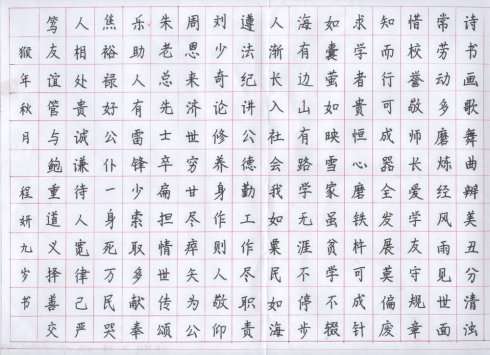 诗书画歌舞曲辩美丑分清浊
常劳动多磨炼经风雨见世面
惜校誉敬师长爱学友守规章
知而行可成器全发展莫偏废
求学者贵恒心磨铁杵可成针
如囊萤如映雪家虽贫学不辍
海有边山有路学无涯不停步
人渐长入社会我如粟民如海
遵法纪讲公德勤工作尽职责
刘少奇论修养身作则人敬仰
周恩来济世穷甘尽瘁矢为公
朱老总先士卒扁担情世传颂
乐助人有雷锋少索取多献奉
焦裕禄好公仆一身死万民哭
人相处贵诚谦待人宽律己严
笃友谊管与鲍重道义择善交
猴年秋月 程妍九岁书